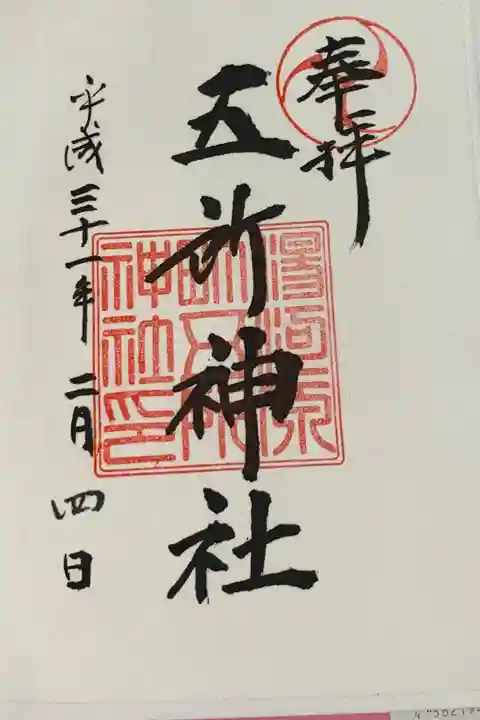 奉拝
五所神社
湯河原
神社印
平成三十一年二月四日